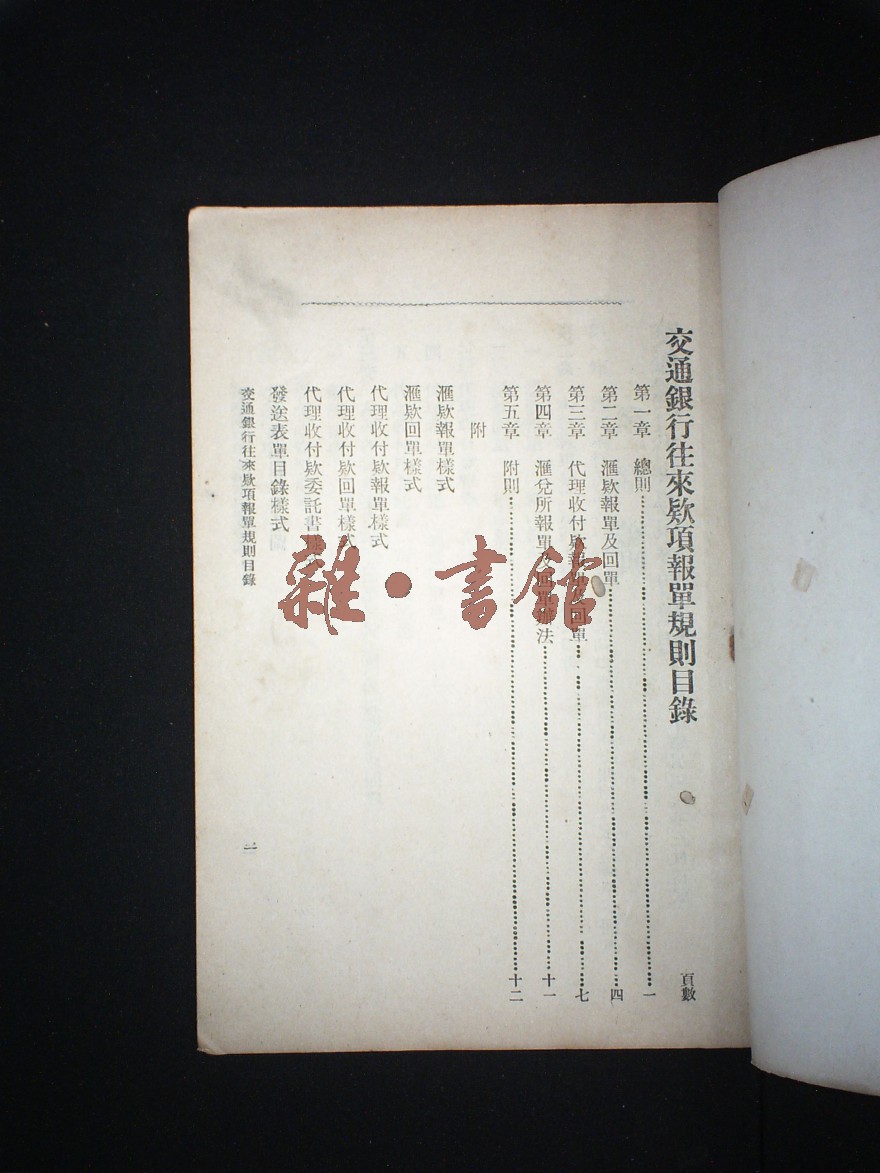 交通銀行往來欵項報單規則目錄
頁數
第一章 總則……一
第二章 滙欵報單及回單……四
第三章 代理收付欵報單及回單……七
第四章 滙兌所報單及回單辦法……十一
第五章 附則……十二
附
滙欵報單樣式
滙欵回單樣式
代理收付欵報單樣式
代理收付欵回單樣式
代理收付欵委託書樣式
發送表單目錄樣式
交通銀行往來欵項報單規則目錄
一
雜·書館